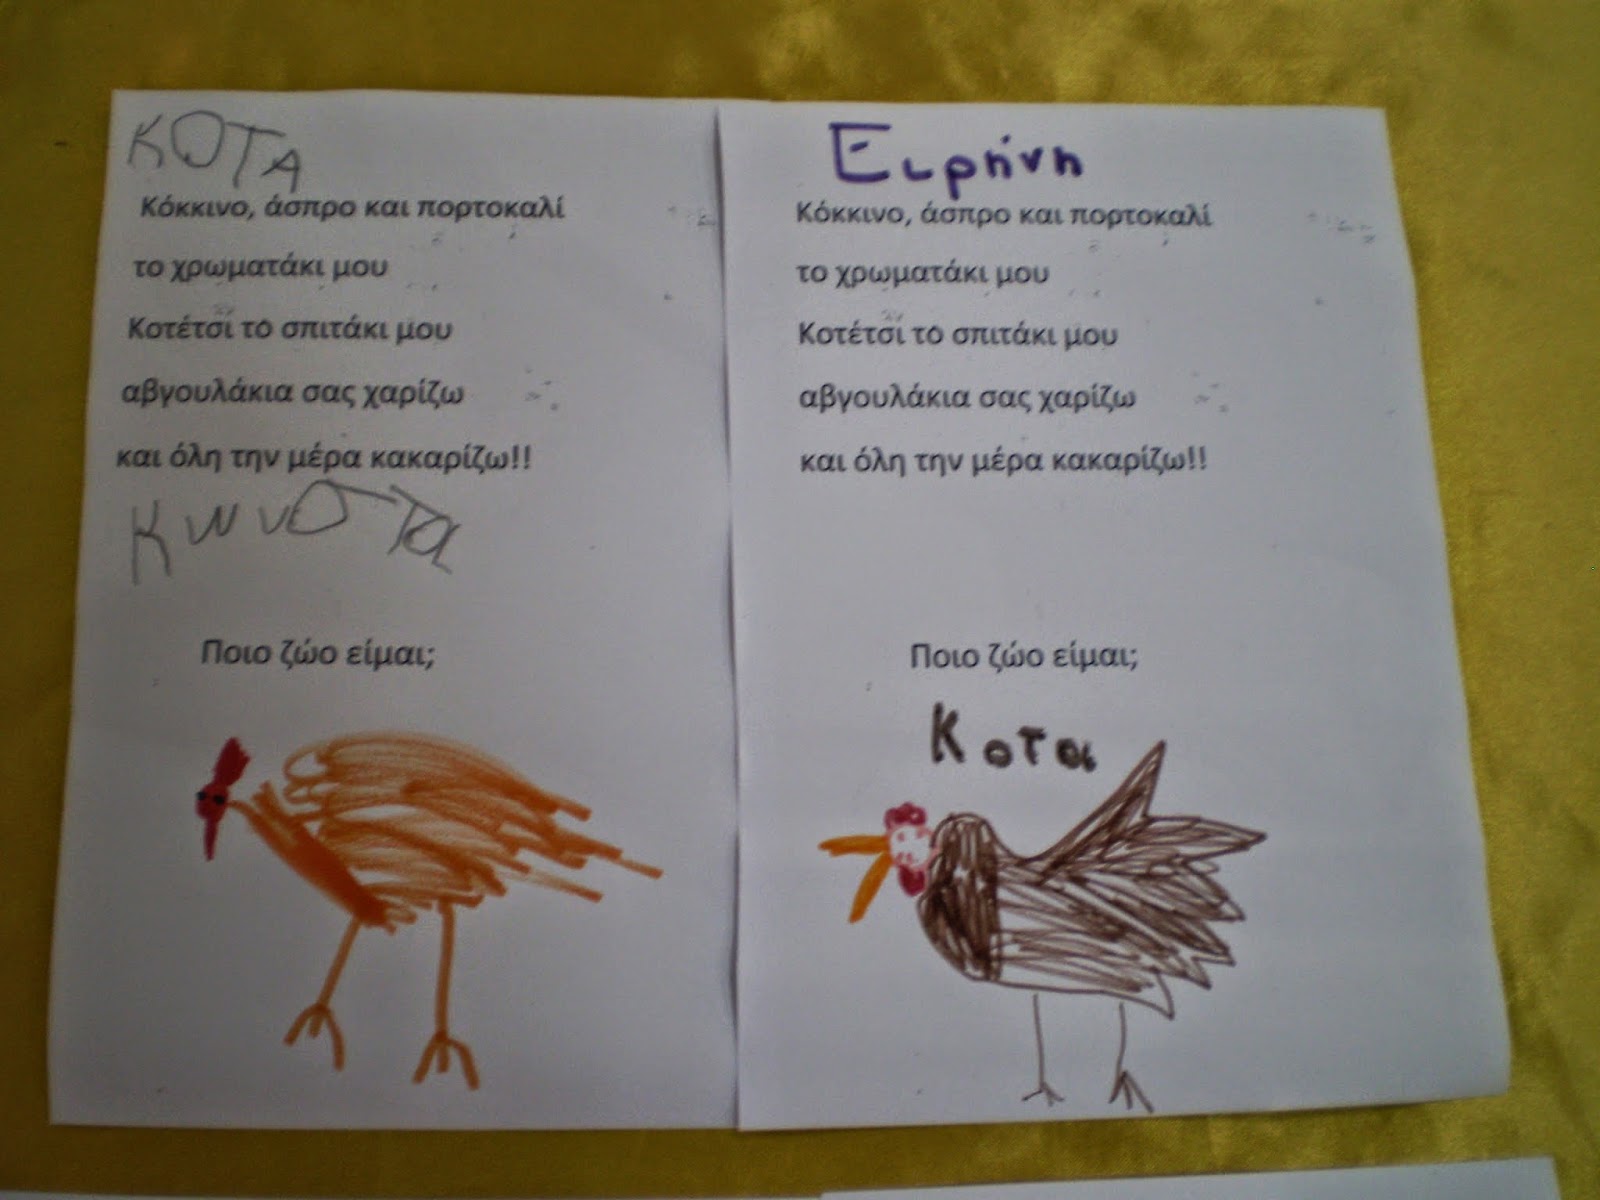 ΚΟΤΑ
Κόκκινο, άσπρο και πορτοκαλί
το χρωματάκι μου
Κοτέτσι το σπιτάκι μου
αβγουλάκια σας χαρίζω
και όλη την μέρα κακαρίζω!!
Ποιο ζώο είμαι;
Ειρήνη
Κόκκινο, άσπρο και πορτοκαλί
το χρωματάκι μου
Κοτέτσι το σπιτάκι μου
αβγουλάκια σας χαρίζω
και όλη την μέρα κακαρίζω!!
Ποιο ζώο είμαι;
Κοτα